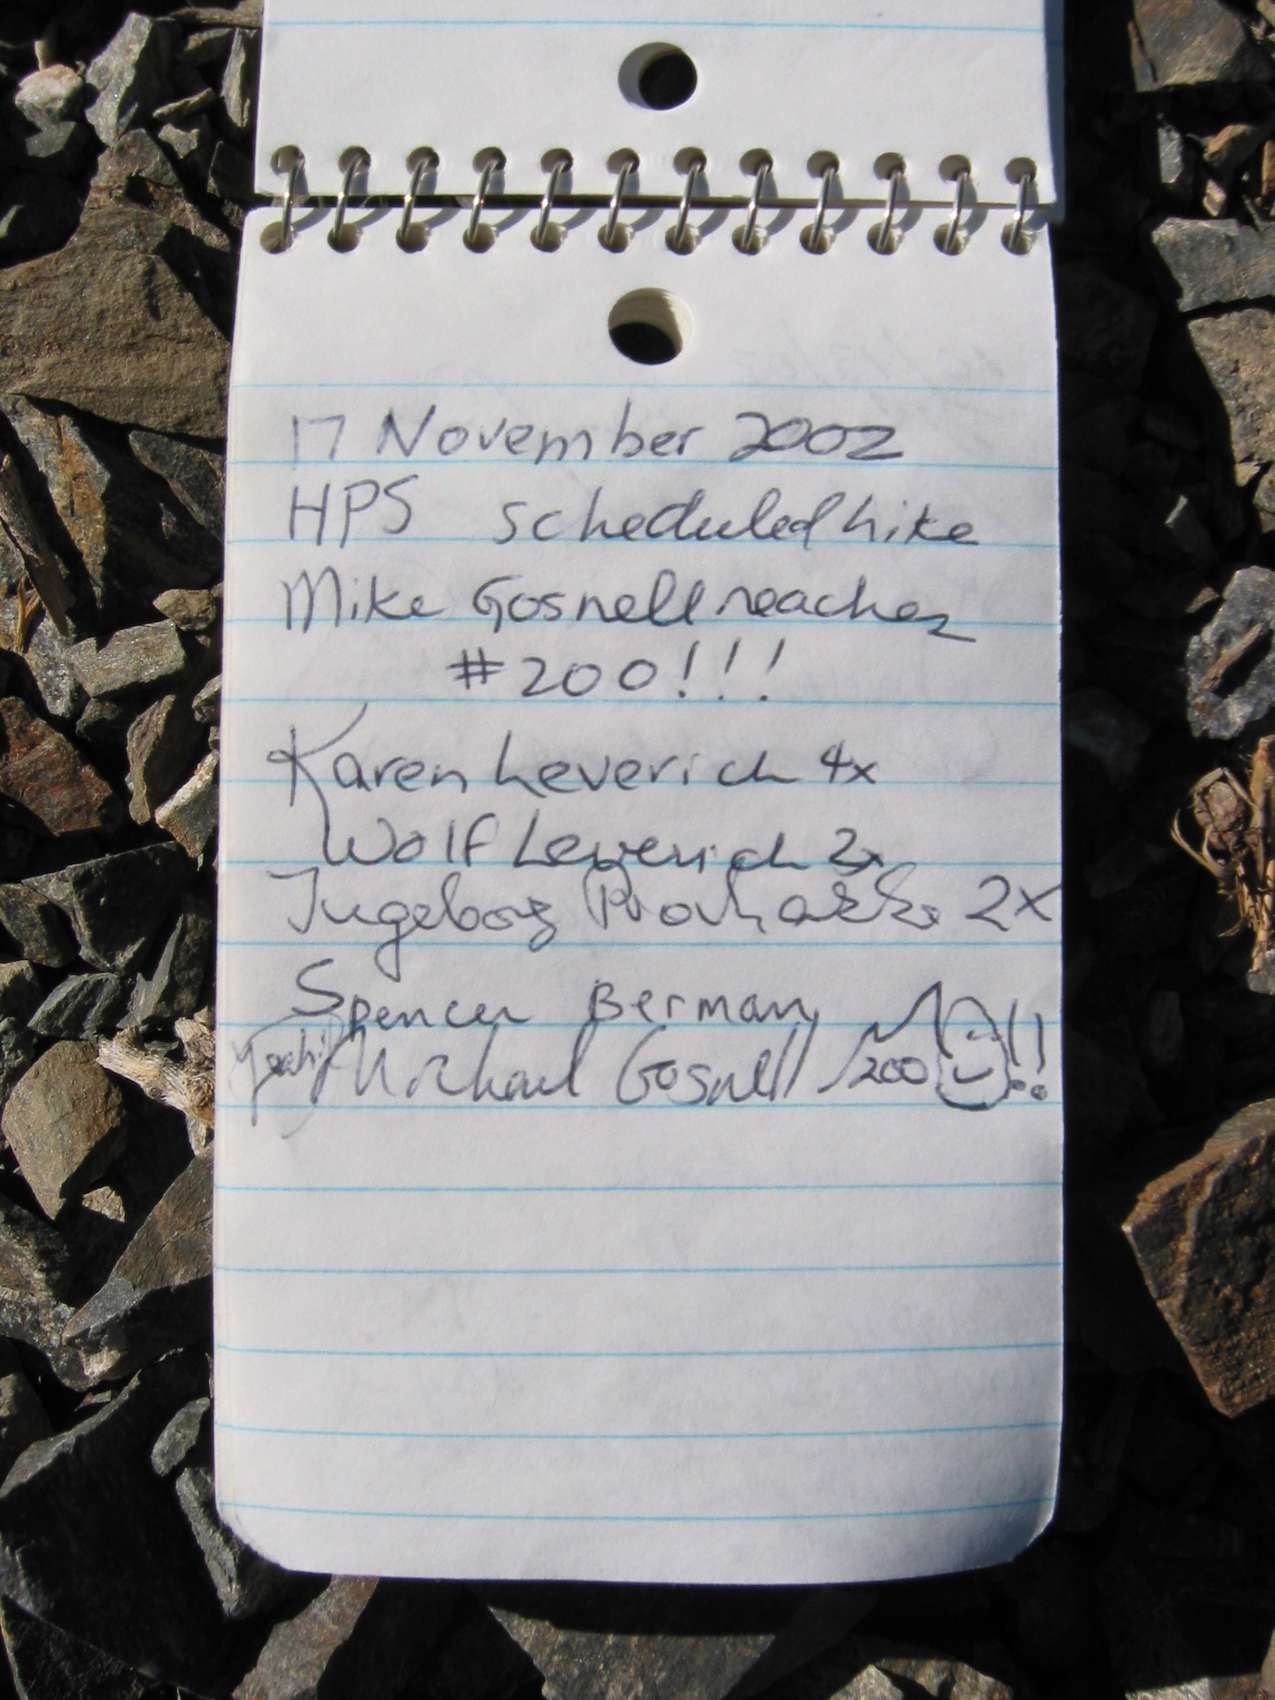 17 November 2002
HPS scheduled hike
Mike Gosnell reaches
#200!!!
Karen Leverich 4x
Wolf Leverich 2x
Ingeborg 2X
Spencer Berman
Michael Gosnell 200 !!